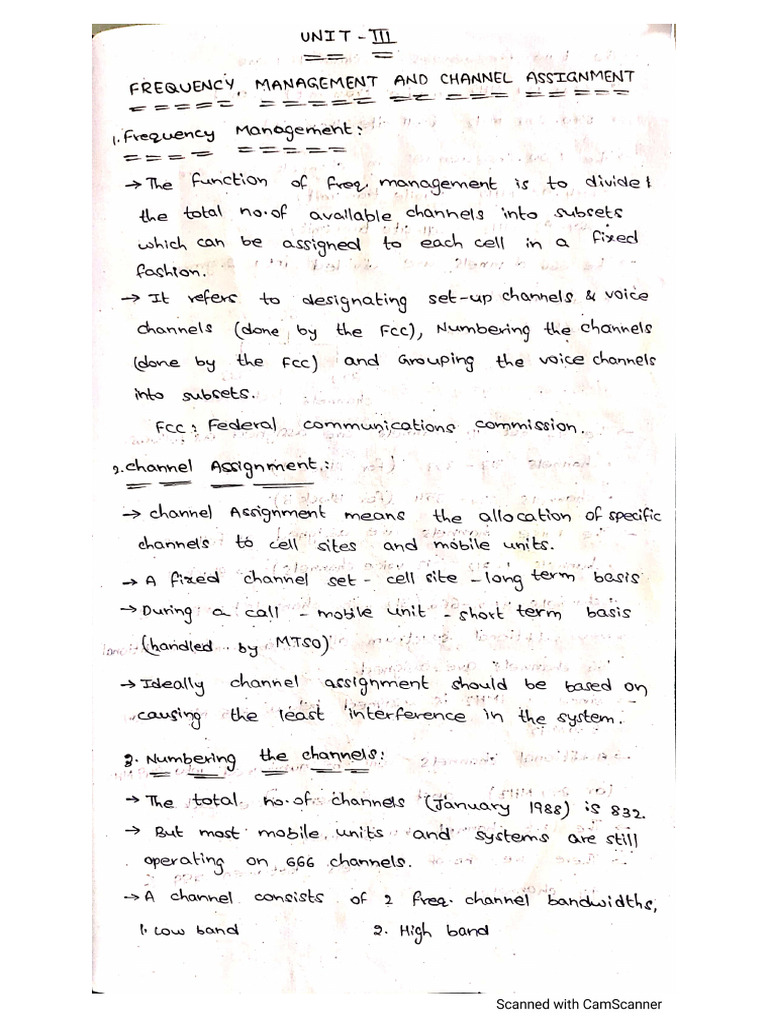 UNIT - III
FREQUENCY MANAGEMENT AND CHANNEL ASSIGNMENT
1. Frequency Management:
→ The function of freq management is to divide
the total no. of available channels into subsets
which can be assigned to each cell in a fixed
fashion.
→ It refers to designating set-up channels & voice
channels (done by the FCC), Numbering the channels
(done by the FCC) and Grouping the voice channels
into subsets.
FCC: Federal communications commission.
2. Channel Assignment:
→ channel Assignment means the allocation of specific
channels to cell sites and mobile units.
→ A fixed channel set - cell site - long term basis
→ During a call - mobile unit - short term basis
(handled by MTSO)
→ Ideally channel assignment should be based on
causing the least interference in the system.
3. Numbering the channels:
→ The total no. of channels (January 1988) is 832.
→ But most mobile units and systems are still
operating on 666 channels.
→ A channel consists of 2 freq. channel bandwidths,
1. Low band 2. High band
Scanned with CamScanner